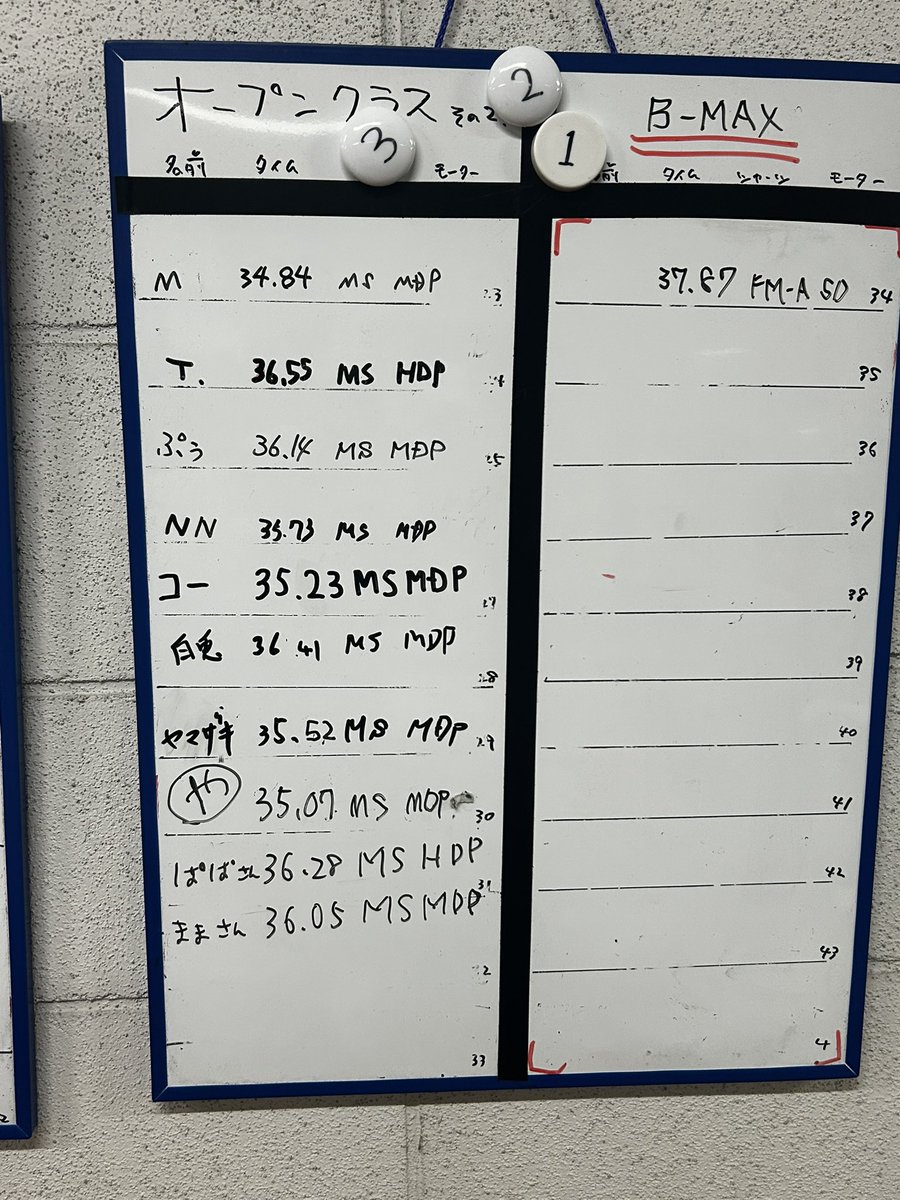 オープンクラス その2
名前 タイム モーター
M 34.84 MS MDP 23
T. 36.55 MS HDP
ぷう 36.14 MS MDP 25
NN 35.73 MS MDP
コー 35.23 MS MDP 27
白兎 36.41 MS MDP 28
ヤマザキ 35.52 MS MDP 29
や 35.07 MS MDP 30
ぱぱさん 36.28 MS HDP 31
ままさん 36.05 MS MDP
2
33
3
2
1
B-MAX
前 タイム シャーシ モーター
37.87 FM-A SD 34
35
36
37
38
39
40
41
42
43
4